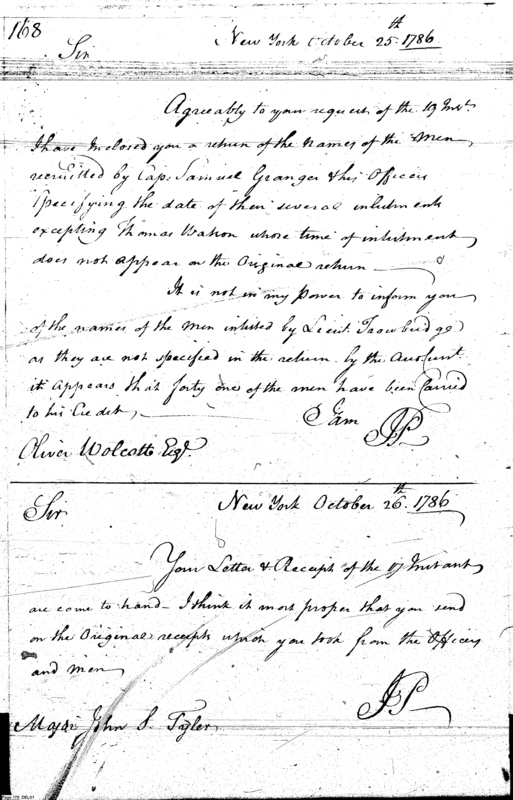 168
New York October 25th. 1786
Sir
Agreably to your request of the 19 Inst.
I have Inclosed you a return of the Names of the Men
recruitted by Cap. Samuel Granger & his Officers
Specifying the date of their several inlistments
excepting Thomas Watson whose time of inlistment
does not appear on the Original return
It is not in my power to inform you
of the names of the men inlisted by Lieut. Trowbridge
as they are not specified in the return. by the Account
it appears that forty one of the men have been Carried
to his Credit,
I am
JP
Oliver Wolcott Esqr.
New York October 26th. 1786
Sir
Your Letter & Receipt of the 17 Instant
are come to hand - I think it most proper that you send
on the Original receipts which you took from the Officers
and men
JP
Major John S. Tyler